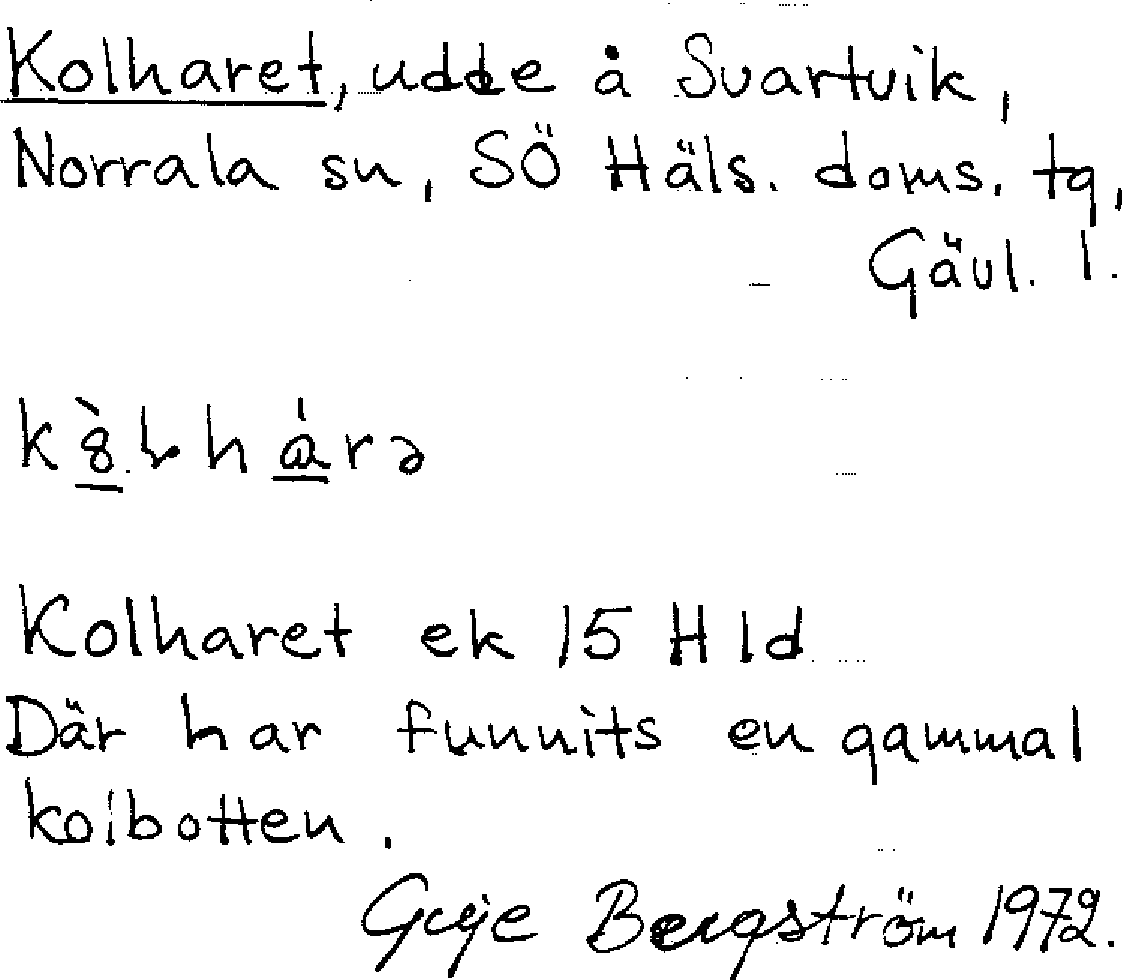 Kolharet, udde å Svartvik,
Norrala sn, SÖ Häls. doms. tg,
Gävl. l.
Kolharet ek 15 H 1d
Där har funnits en gammal
kolbotten.
Bergström 1972.